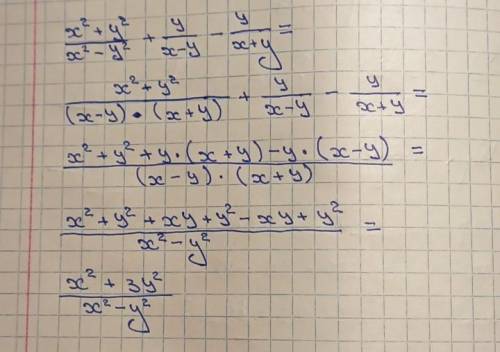 (x² + y²)/(x² - y²) + y/(x-y) - y/(x+y) =
(x² + y²)/((x-y) · (x+y)) + y/(x-y) - y/(x+y) =
(x² + y² + y · (x+y) - y · (x-y))/((x-y) · (x+y)) =
(x² + y² + xy + y² - xy + y²)/(x² - y²) =
(x² + 3y²)/(x² - y²)